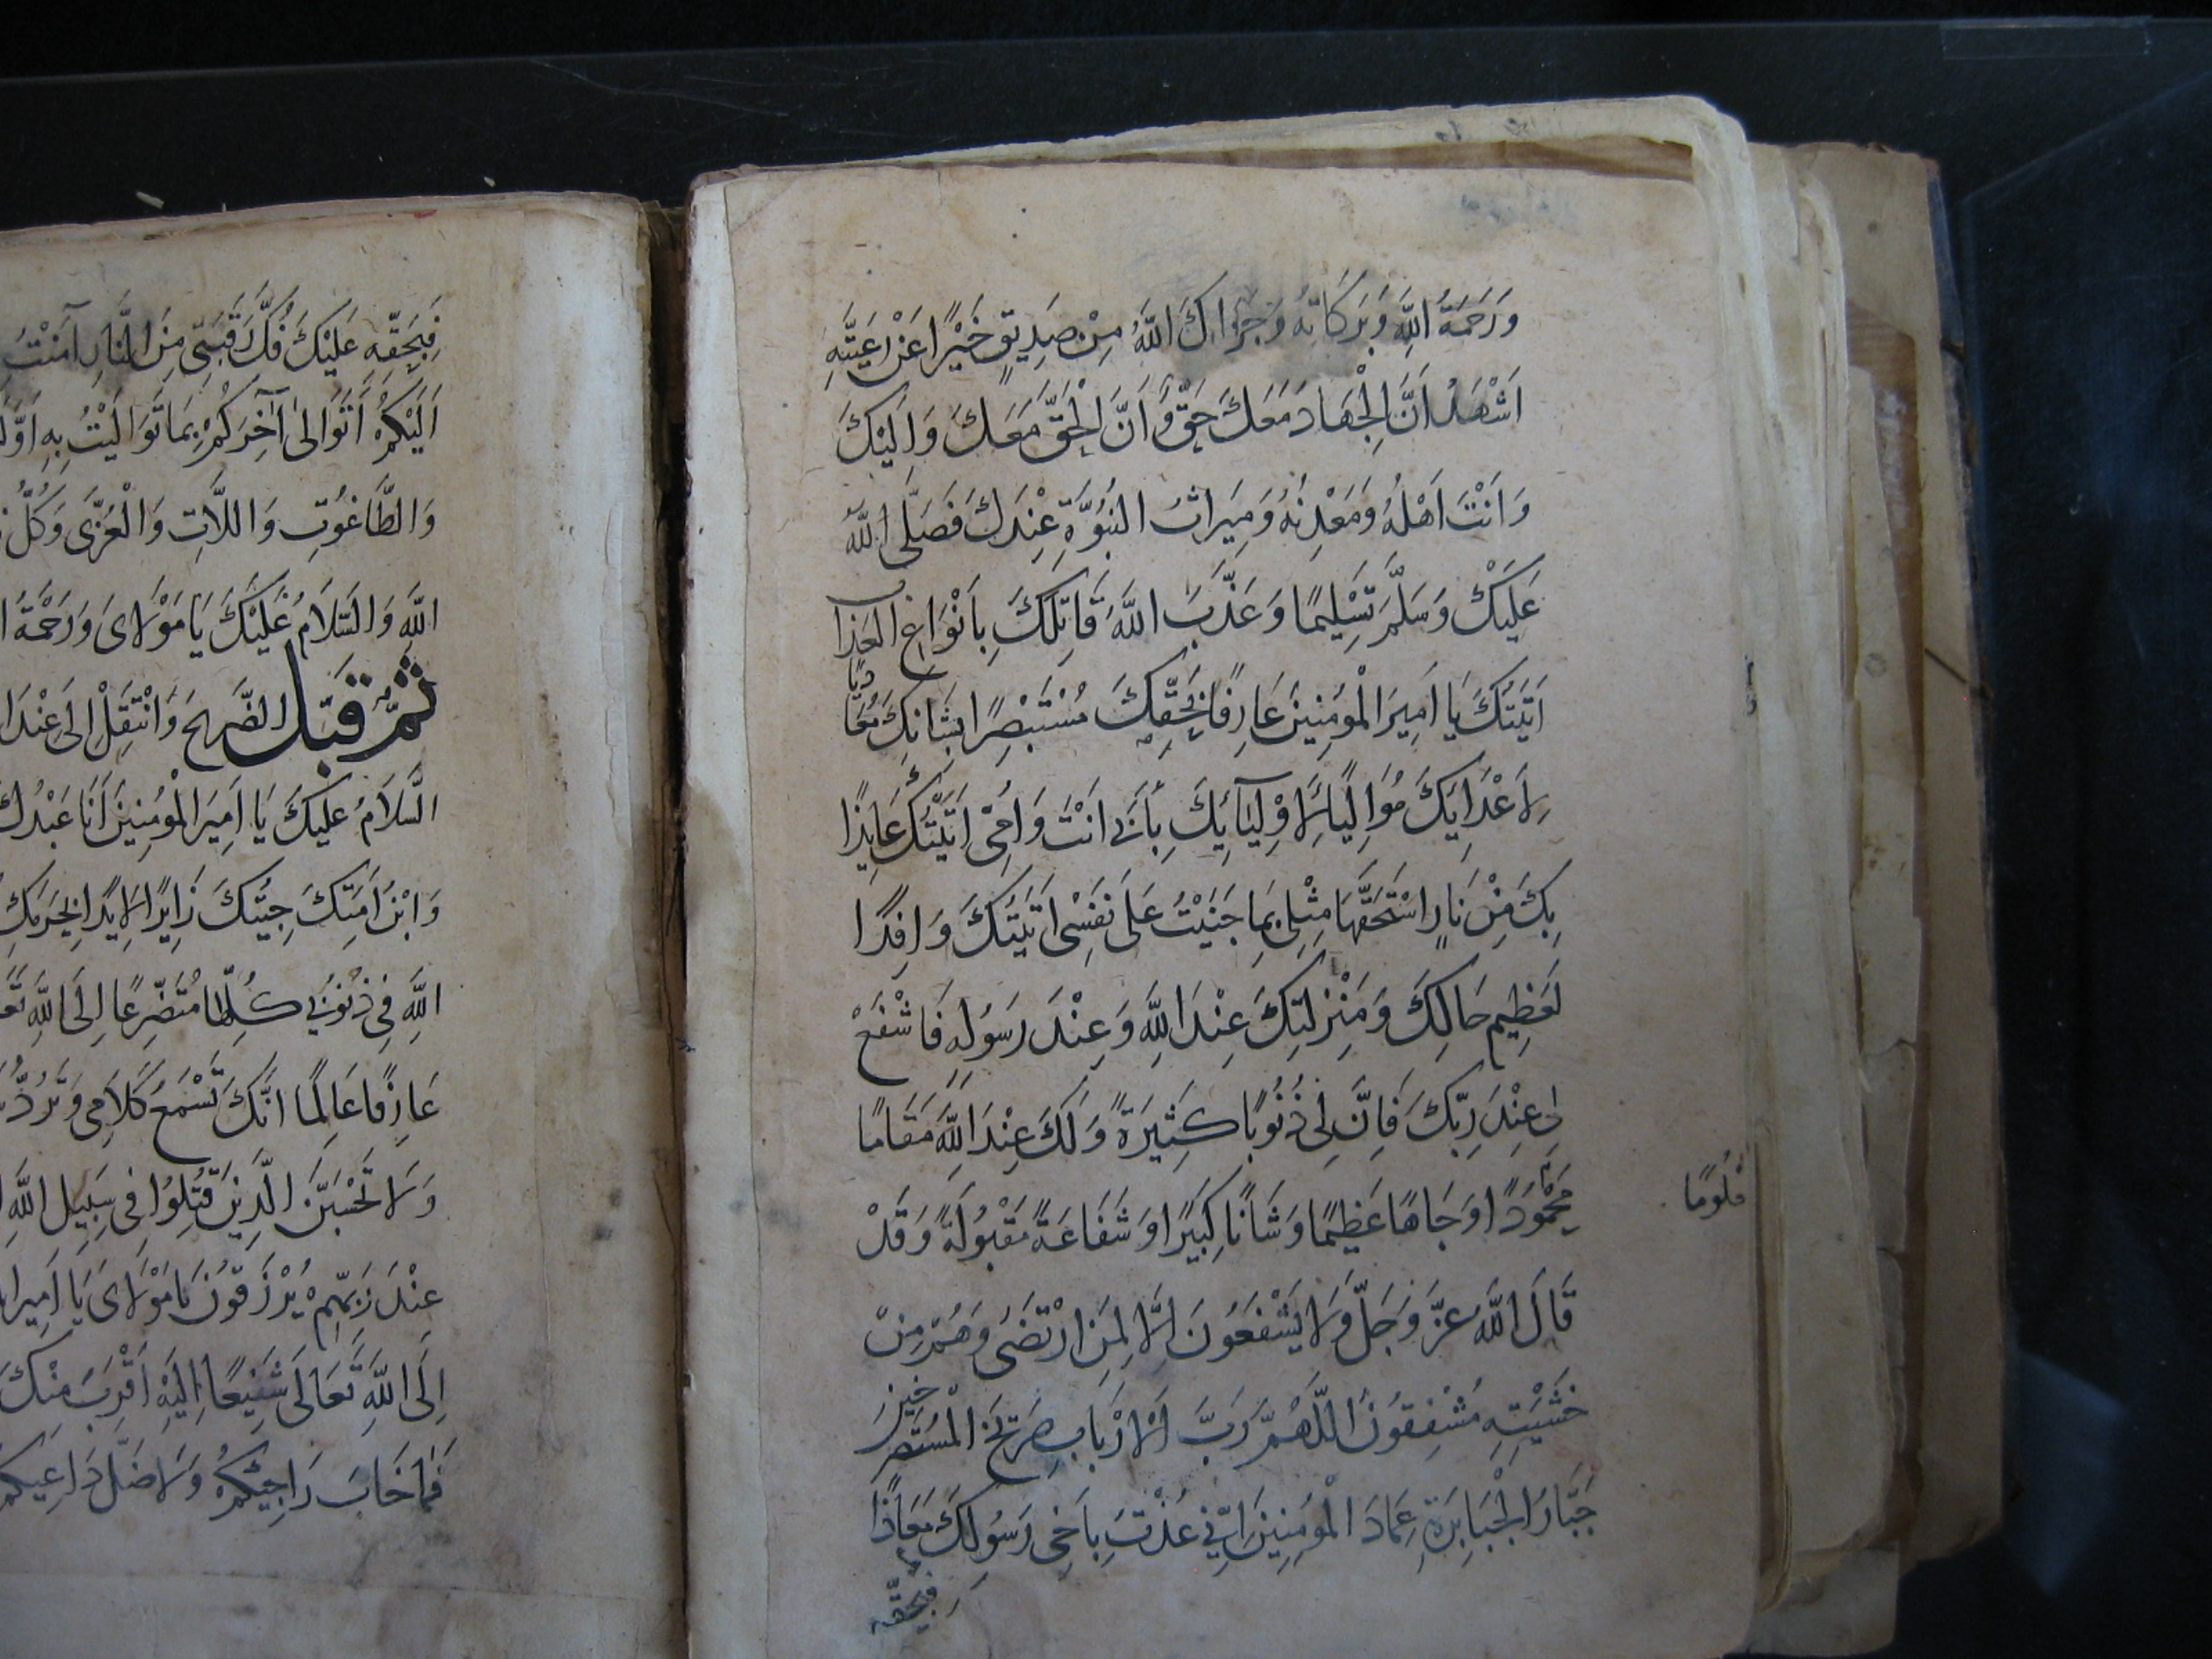 وَرَحْمَةُ اللَّهِ وَبَرَكَاتُهُ وَجَزَاكَ اللَّهُ مِنْ صِدِيقٍ خَيْرًا عَنْ رَعِيَّتِهِ
اَشْهَدُ اَنَّ الْجِهَادَ مَعَكَ حَقٌّ وَاَنَّ الْحَقَّ مَعَكَ وَاِلَيْكَ
وَاَنْتَ اَهْلُهُ وَمَعْدِنُهُ وَمِيرَاثُ النُبُوَّةِ عِنْدَكَ فَصَلَّى اللَّهُ
عَلَيْكَ وَسَلَّمَ تَسْلِيمًا وَعَذَّبَ اللَّهُ قَاتِلَكَ بِاَنْوَاعِ العَذَابِ
اَتَيْتُكَ يَا اَمِيرَ الْمُؤمِنِينَ عَارِفًا بِحَقِّكَ مُسْتَبْصِرًا بِشَانِكَ مُعَادِيًا
لِاَعْدَايِكَ مُوَالِيًا لِاَوْلِيَآئِكَ بِأَبِي اَنْتَ وَاُمِّى اَتَيْتُكَ عَايِذًا
بِكَ مِنْ نَارٍ اسْتَحَقَّهَا مِثْلِى بِمَا جَنَيْتُ عَلَى نَفْسِى اَتَيْتُكَ وَافِدًا
لِعَظِيمِ حَالِكَ وَمَنْزِلَتِكَ عِنْدَ اللَّهِ وَعِنْدَ رَسُولِهِ فَاشْفَعْ
لِى عِنْدَ رَبِّكَ فَاِنَّ لِى ذُنُوبًا كَثِيرَةً وَلَكَ عِنْدَ اللَّهِ مَقَامًا
مَحْمُودًا وَجَاهًا عَظِيمًا وَشَانًا كَبِيرًا وَشَفَاعَةً مَقْبُولَةً وَقَدْ
مَلُومًا
قَالَ اللَّهُ عَزَّ وَجَلَّ وَلَا يَشْفَعُونَ اِلَّا لِمَنِ ارْتَضَى وَهُمْ مِنْ
خَشْيَتِهِ مُشْفِقُونَ اللَّهُمَّ رَبَّ الْاَرْبَابِ صَرِيخَ الْمُسْتَصْرِخِينَ
جَبَّارَ الْجَبَابِرَةِ عِمَادَ الْمُؤمِنِينَ اِنِّى عُذْتُ بِاَخِى رَسُولِكَ مَعَاذًا
فَبِحَقِّهِ
فَبِحَقِّهِ عَلَيْكَ فُكَّ رَقَبَتِى مِنَ النَّارِ آمَنْتُ
اِلَيْكُمْ اَتَوَالىٰ آخِرَكُمْ بِمَا تَوَالَيْتُ بِهِ اَوَّلَ
وَالطَّاغُوتِ وَاللَّاتِ وَالْعُزَّى وَكُلِّ
اللَّهِ وَالسَّلَامُ عَلَيْكَ يَا مَوْلَاىَ وَرَحْمَةُ
ثُمَّ قَبِّلِ الضَّرِيحَ وَانْتَقِلْ اِلَى عِنْدَ
السَّلَامُ عَلَيْكَ يَا اَمِيرَ الْمُؤمِنِينَ اَنَا عَبْدُكَ
وَابْنُ اَمَتِكَ جِئْتُكَ زَايِرًا لَايِذًا بِحَرَمِكَ
اللَّهِ فِى ذُنُوبِى كُلِّهَا مُتَضَرِّعًا اِلَى اللَّهِ تَعَ
عَارِفًا عَالِمًا اِنَّكَ تَسْمَعُ كَلَامِى وَتَرُدُّ
وَلَا تَحْسَبَنَّ الَّذِينَ قُتِلُوا فِى سَبِيلِ اللَّهِ
عِنْدَ رَبِّهِمْ يُرْزَقُونَ يَا مَوْلَاىَ يَا اَمِيرَ
اِلَى اللَّهِ تَعَالَى شَفِيعًا اِلَيْهِ اَقْرَبَ مِنْكَ
فَمَا خَابَ رَاجِيكُمْ وَلَا ضَلَّ دَاعِيكُمْ